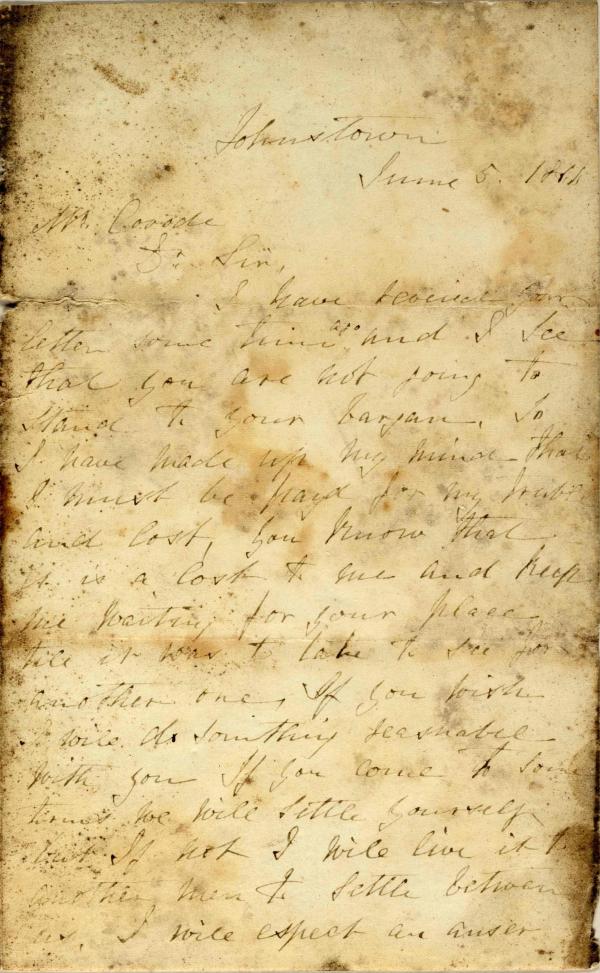 Johnstown
June 5. 188
Mr. Covode
Dr Sir,
I have received your
letter some time ago and I see
that you are not going to
stand to your bargan. So
I have made up my mind that
I must be payd for my truble
and Cost, you know that
it is a Cost to me and keep
me waiting for your place
till it was to late to see for
another one, If you wish
I wile do somthing reasnable
with you If you come to some
terms we wile settle yourself
but If not I wile live it to
another men to settle betwen
us. I wile expect an anser